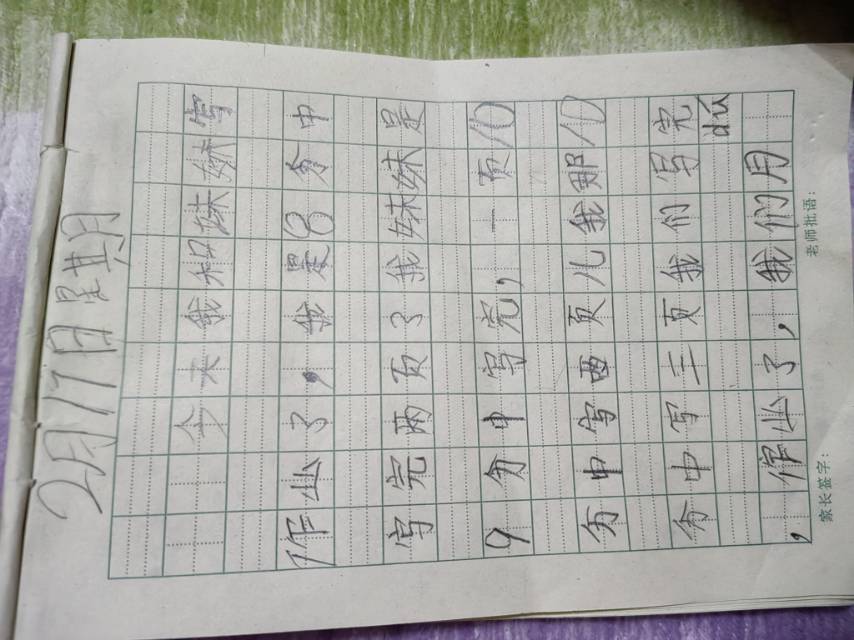 2月17日星其月
今天我和妹妹写
作业了，我是8分中
写完两页了我妹妹是
9分中写完，一页10
分中写两页儿我那10
分中写三页我们写完
，作业了，我们用
家长签字： 老师批语：